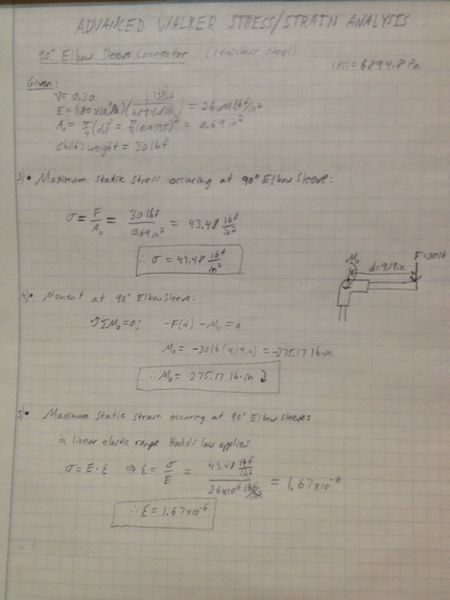 ADVANCED WALKER STRESS/STRAIN ANALYSIS
90° Elbow Sleeve Connector (stainless steel)
1 psi = 6894.8 Pa
Given:
ν = 0.30
E = (180x10⁹Pa)(1 lbf/in² / 6894.8 Pa) = 26 M lbf/in²
A₀ = π/4 (d)² = π/4 (0.9375)² = 0.69 in²
Child's weight = 30 lbf
3)• Maximum static stress occuring at 90° Elbow Sleeve:
σ = F/A₀ = 30 lbf/0.69 in² = 43.48 lbf/in²
∴ σ = 43.48 lbf/in²
M₀ d=9.19in. F=30lb
4)• Moment at 90° Elbow Sleeve:
↺ΣM₀=0; -F(d) - M₀ = 0
M₀ = -30lb(9.19in) = -275.17 lb·in
∴ M₀ = 275.17 lb·in ↻
5)• Maximum static strain occuring at 90° Elbow Sleeve:
in linear elastic range Hooke's law applies
σ = E·ε ⇒ ε = σ/E = 43.48 lbf/in² / 26x10⁶ lbf/in² = 1.67x10⁻⁶
∴ ε = 1.67x10⁻⁶